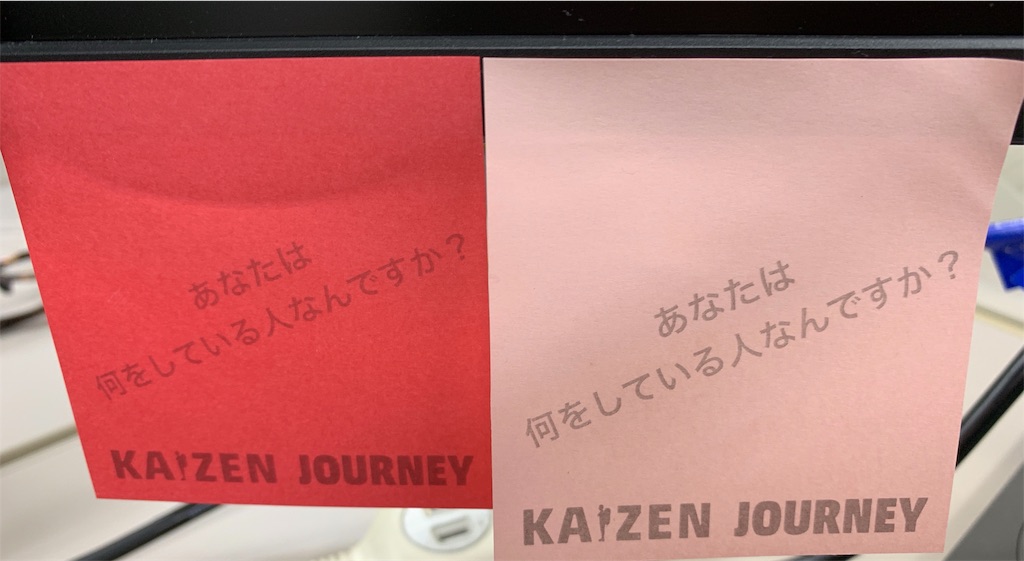 あなたは
何をしている人なんですか？
KAIZEN JOURNEY
あなたは
何をしている人なんですか？
KAIZEN JOURNEY